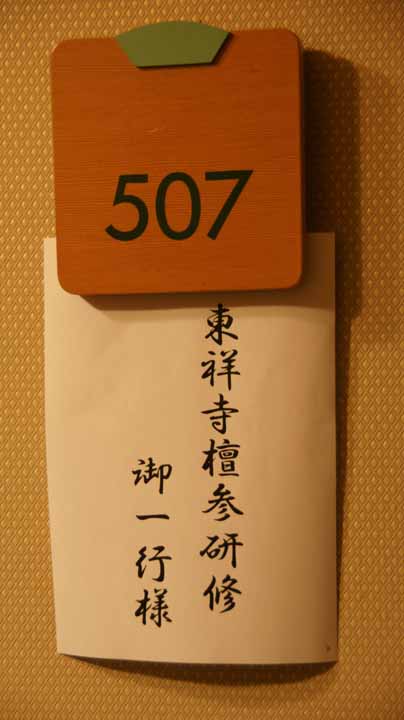 507
東祥寺檀参研修
御一行様